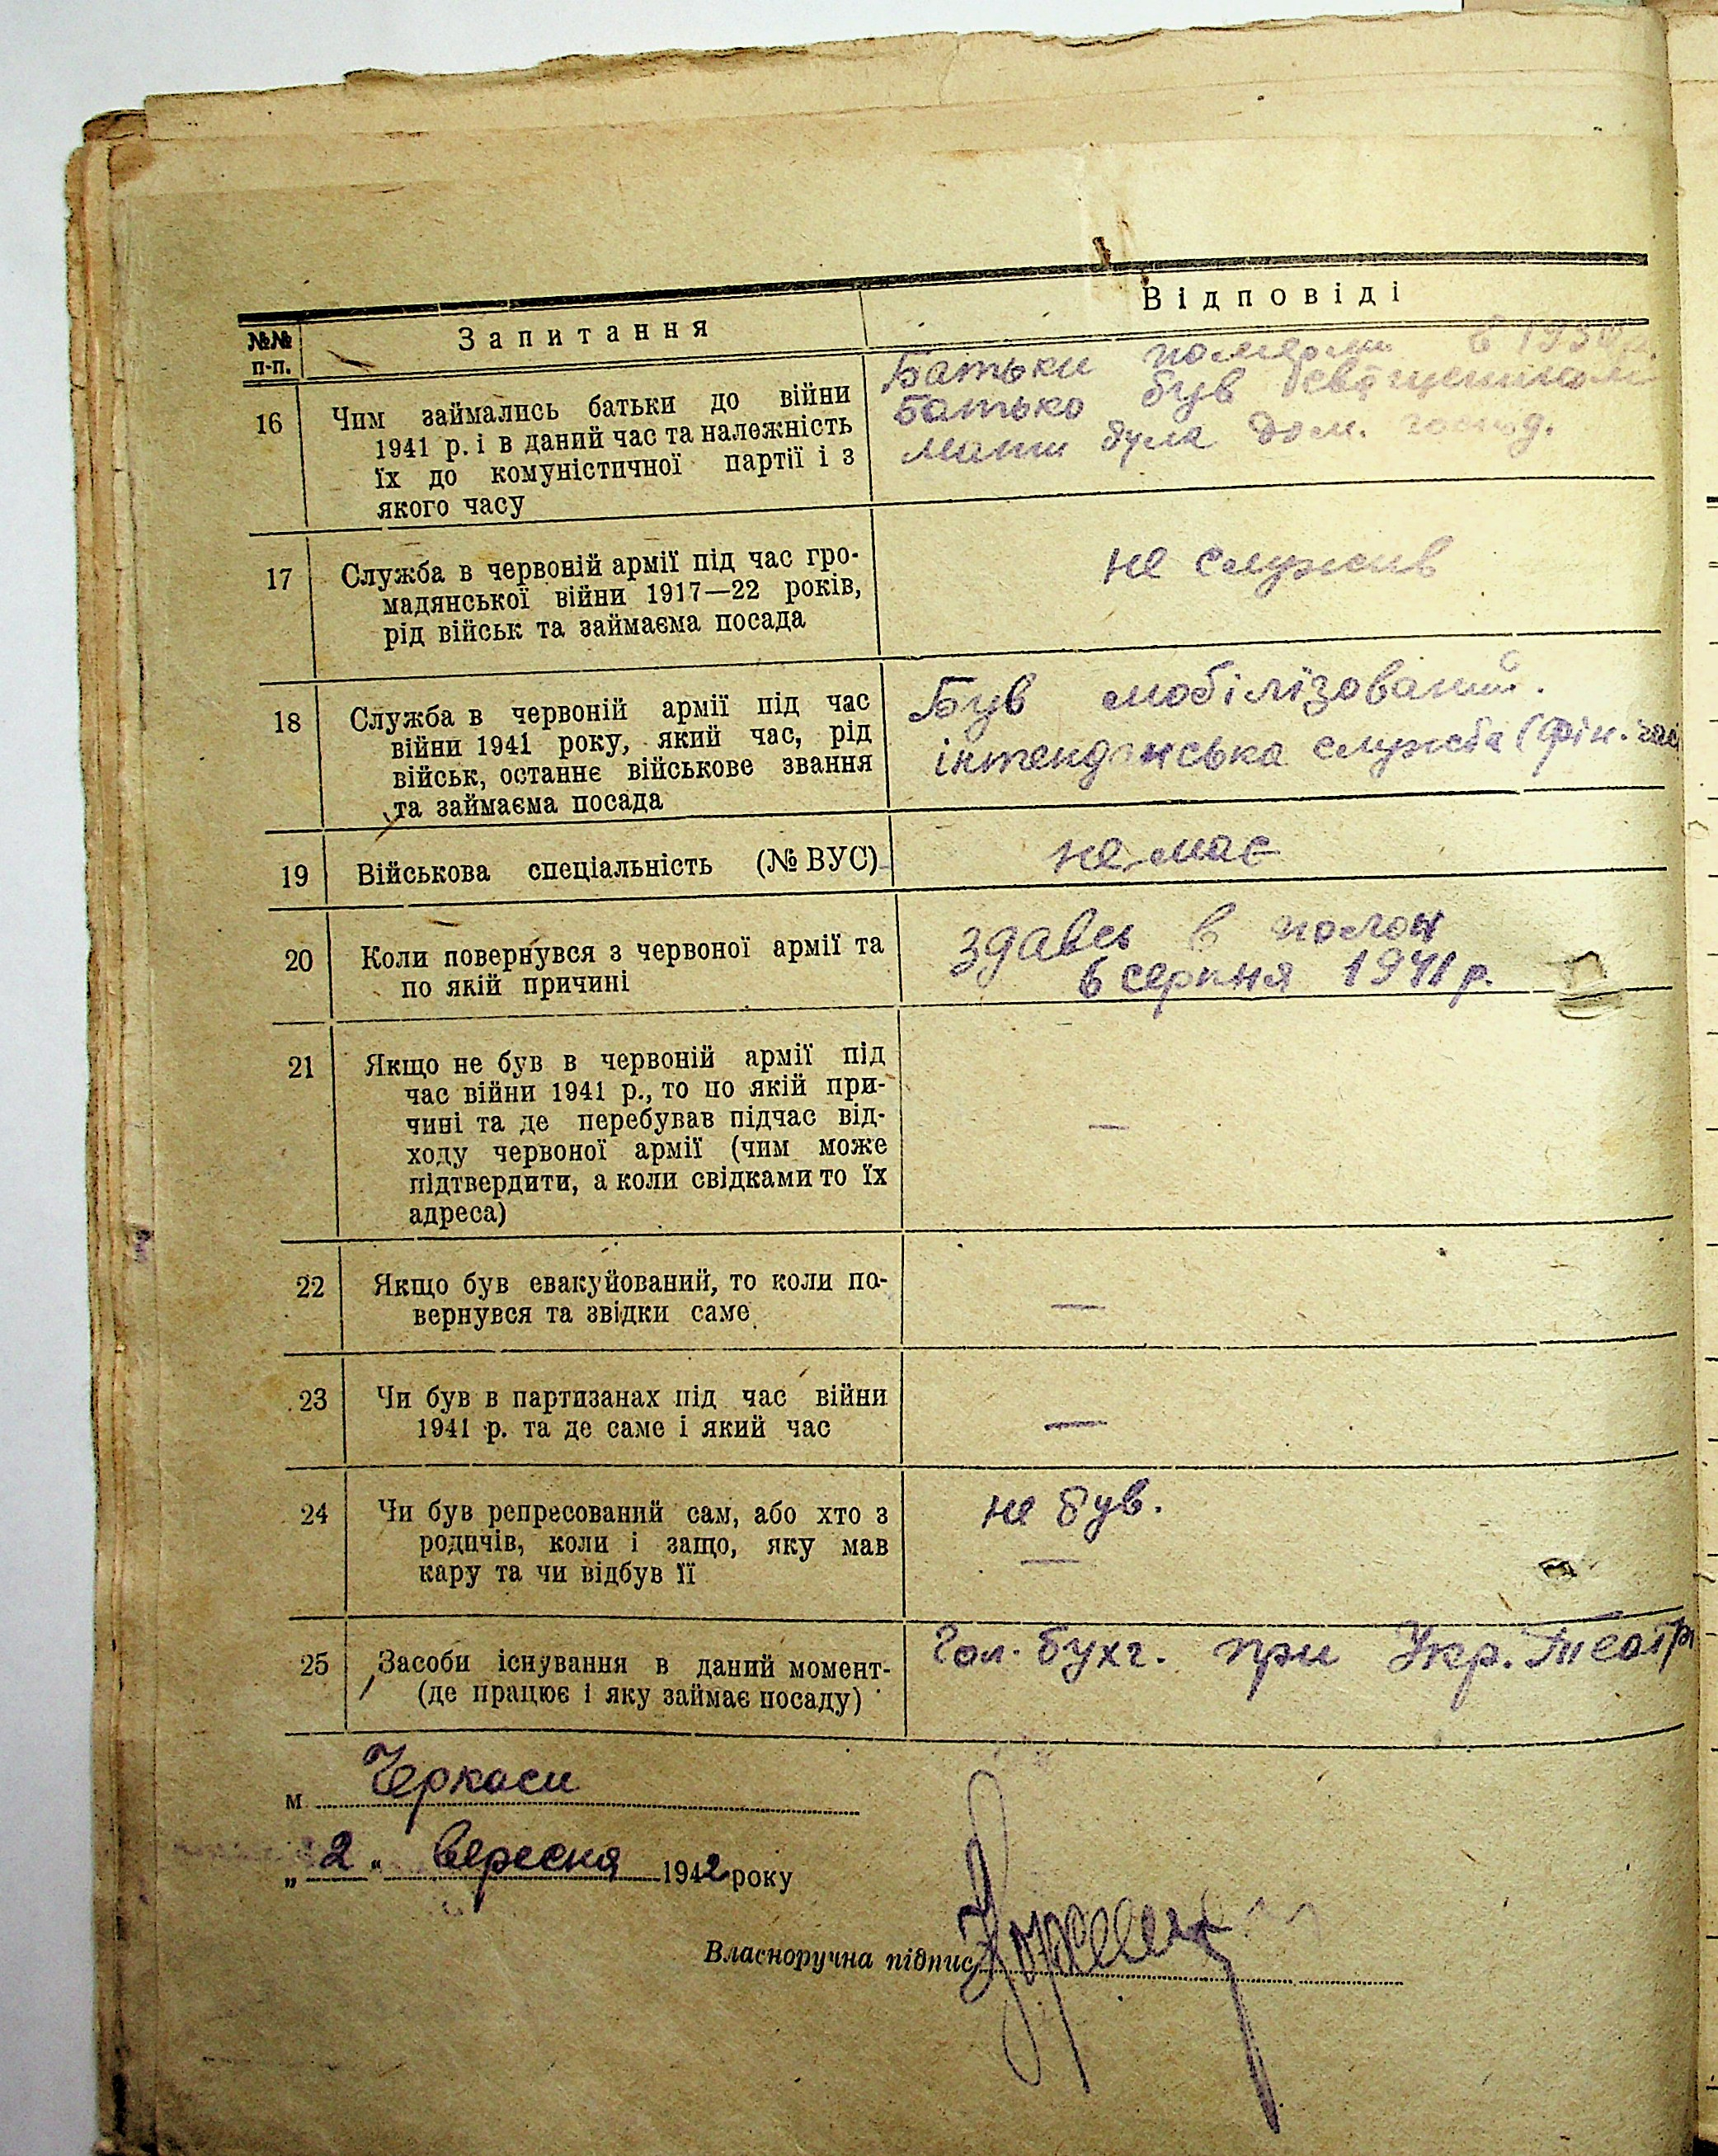 №№ п-п.
Запитання
Відповіді
16
Чим займались батьки до війни
1941 р. і в даний час та належність
їх до комуністичної партії і з
якого часу
Батьки померли в
Батько був священиком
мати була дом. господ.
17
Служба в червоній армії під час гро-
мадянської війни 1917—22 років,
рід військ та займаєма посада
не служив
18
Служба в червоній армії під час
війни 1941 року, який час, рід
військ, останнє військове звання
та займаєма посада
Був мобілізований.
інтенданська служба (фін. час
19
Військова спеціальність (№ ВУС)
не має
20
Коли повернувся з червоної армії та
по якій причині
здавсь в полон
6 серпня 1941 р.
21
Якщо не був в червоній армії під
час війни 1941 р., то по якій при-
чині та де перебував підчас від-
ходу червоної армії (чим може
підтвердити, а коли свідками то їх
адреса)
—
22
Якщо був евакуйований, то коли по-
вернувся та звідки саме
—
23
Чи був в партизанах під час війни
1941 р. та де саме і який час
—
24
Чи був репресований сам, або хто з
родичів, коли і защо, яку мав
кару та чи відбув її
не був.
—
25
Засоби існування в даний момент-
(де працює і яку займає посаду)
Гол. бухг. при Укр. Театр
м. Черкаси
„ 2 " вересня 1942 року
Власноручна підпис